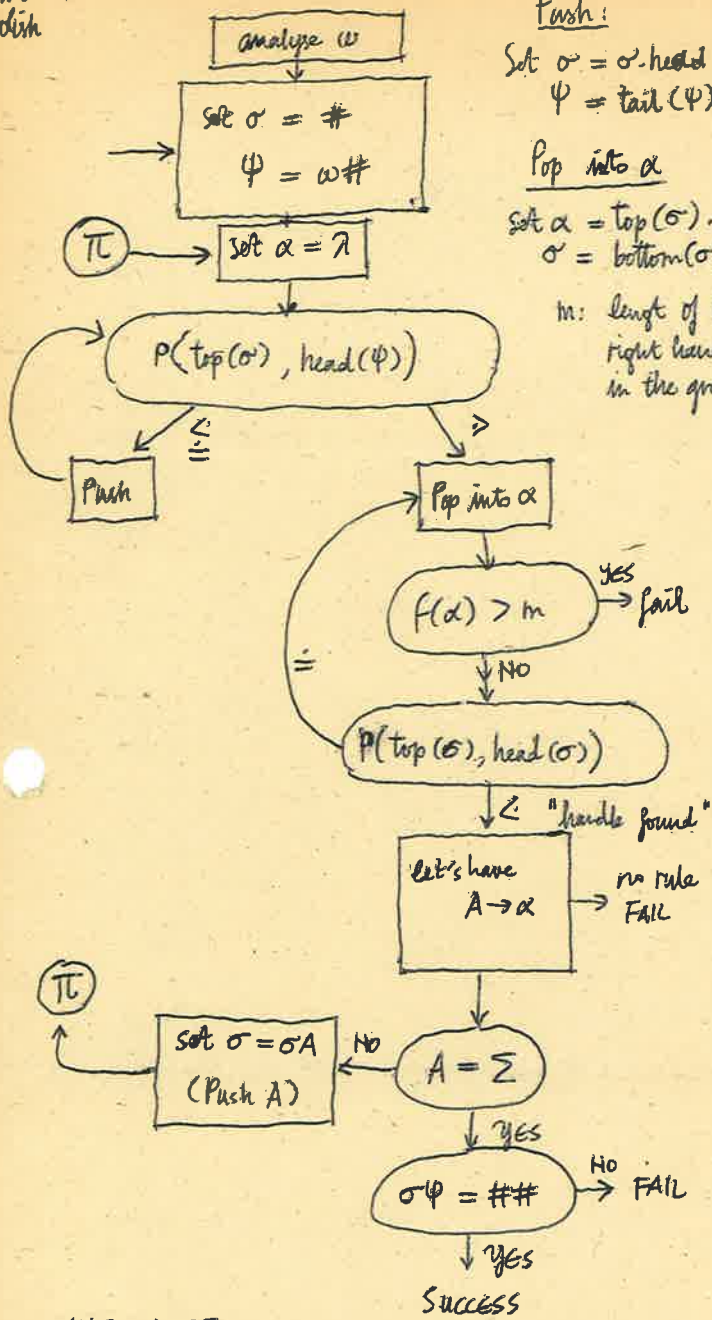 analyse ω
set σ = #
ψ = ω#
π
set α = λ
P(top(σ), head(ψ))
⋖
≐
⋗
Push
Pop into α
f(α) > m
YES
fail
NO
≐
P(top(σ), head(σ))
⋖ "handle found"
let's have
A → α
no rule
FAIL
A = Σ
NO
set σ = σA
(Push A)
π
YES
σψ = ##
NO
FAIL
YES
SUCCESS
Push:
Set σ = σ.head
ψ = tail(ψ)
Pop into α
set α = top(σ).
σ = bottom(σ
m: lengt of
right han
in the gr